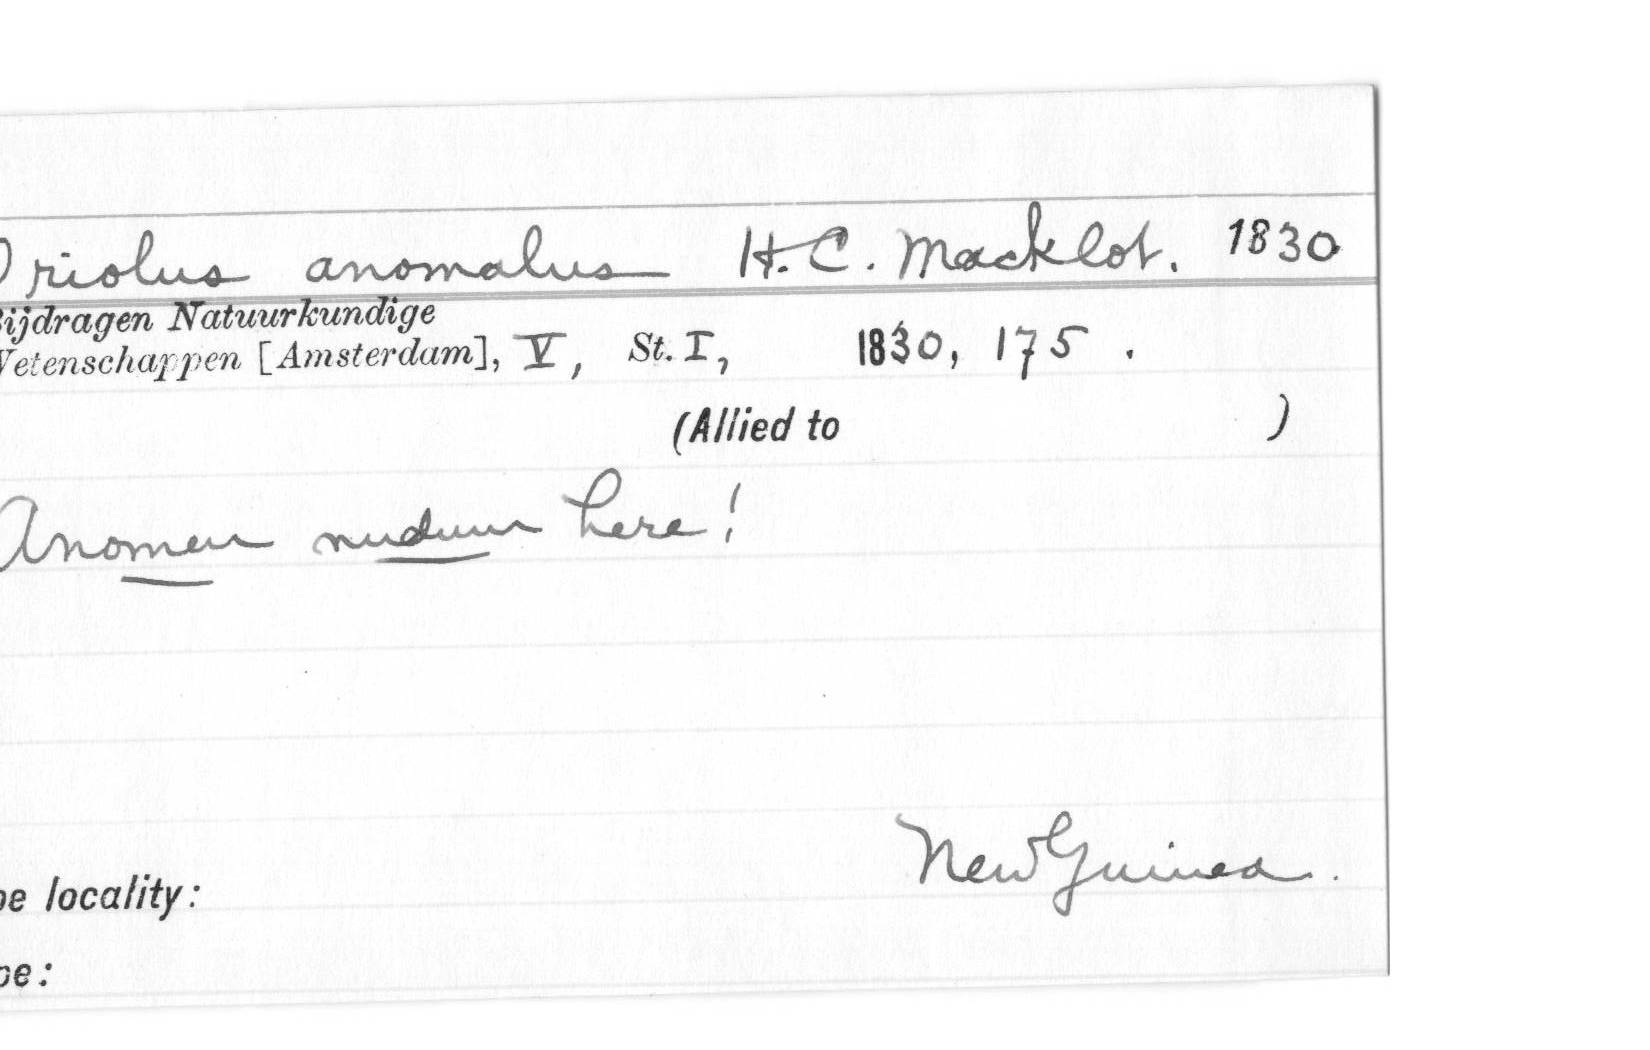 Oriolus anomalus H.C. Macklot. 1830
Bijdragen Natuurkundige
Wetenschappen [Amsterdam], V, St. I, 1830, 175.
(Allied to )
A nomen nudum here!
New Guinea.
pe locality:
pe: